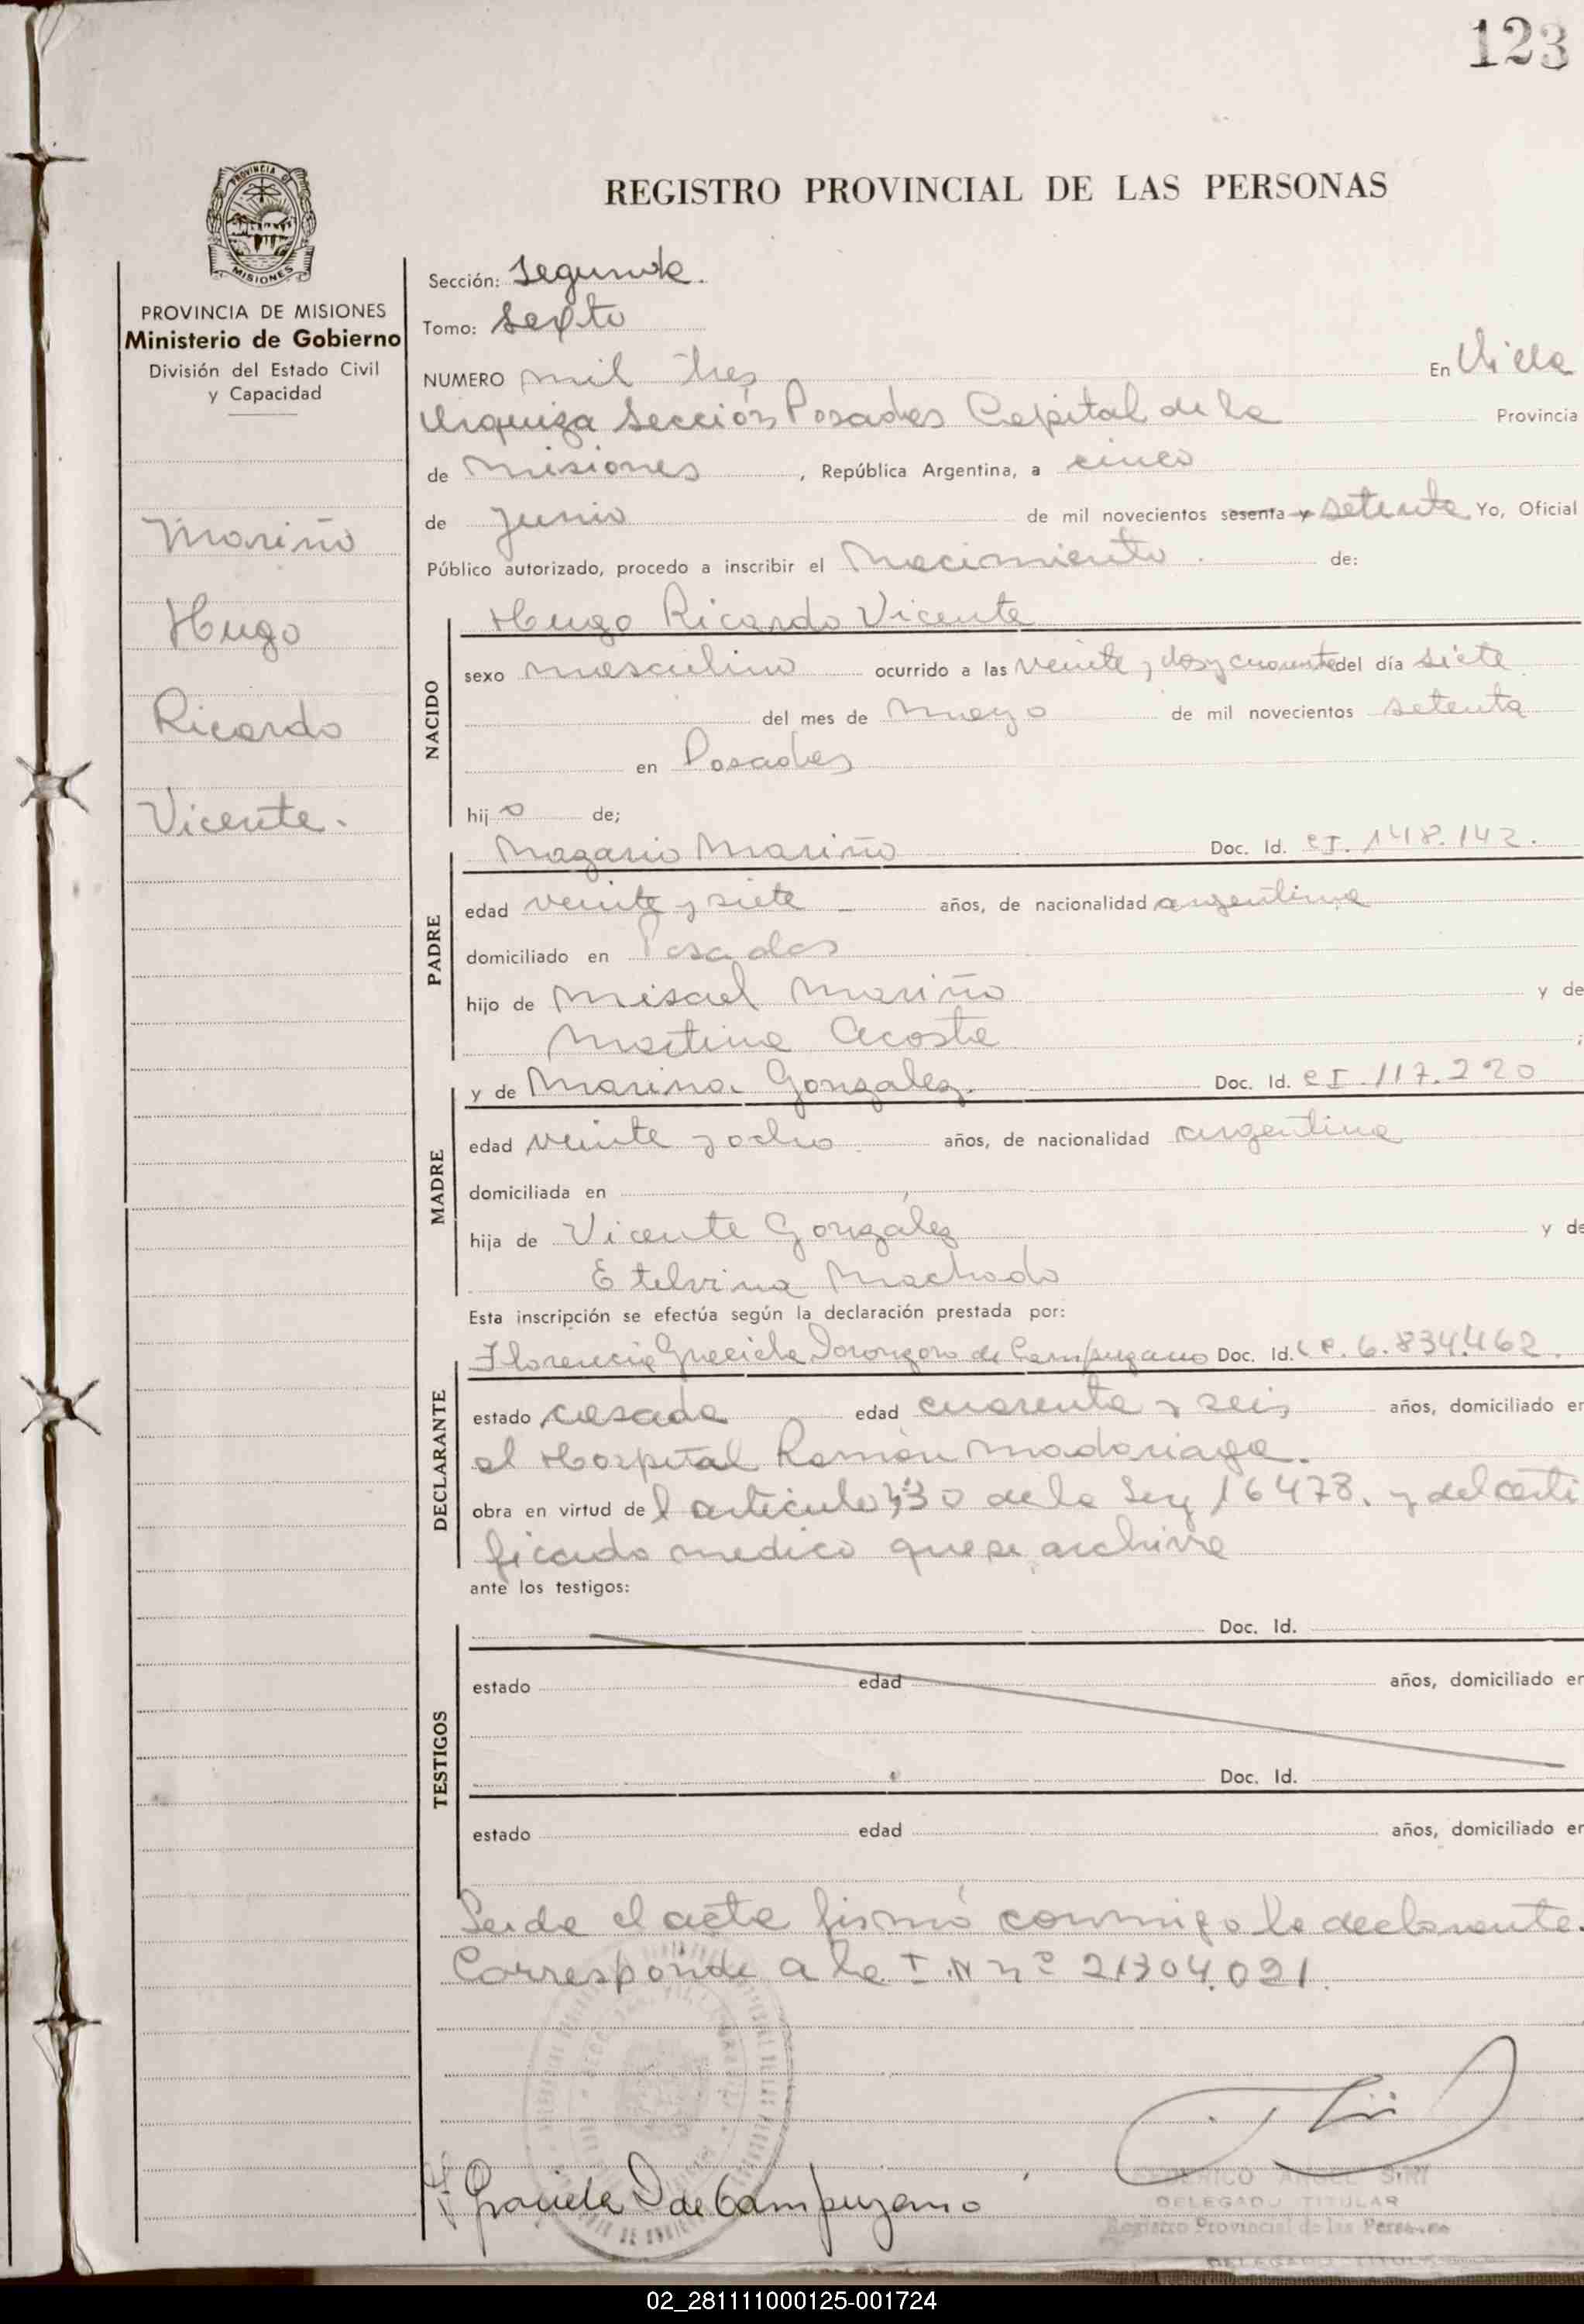 123
REGISTRO PROVINCIAL DE LAS PERSONAS
PROVINCIA DE MISIONES
Ministerio de Gobierno
División del Estado Civil
y Capacidad
Mariño
Hugo
Ricardo
Vicente.
Sección: Segunda.
Tomo: Sexto
NUMERO mil tres En Villa
Urquiza Sección Posadas Capital de la Provincia
de Misiones, República Argentina, a cinco
de Junio de mil novecientos sesenta y setenta Yo, Oficial
Público autorizado, procedo a inscribir el Nacimiento de:
NACIDO
Hugo Ricardo Vicente
sexo masculino ocurrido a las veinte y dos y cuarenta del día siete
del mes de mayo de mil novecientos setenta
en Posadas
hijo de;
PADRE
Nazario Mariño Doc. Id. CI. 148.142.
edad veinte y siete años, de nacionalidad argentina
domiciliado en Posadas
hijo de Misael Mariño y de
Martina Acosta ;
MADRE
y de Marina Gonzalez. Doc. Id. CI. 117.220
edad veinte y ocho años, de nacionalidad argentina
domiciliada en
hija de Vicente González y de
Etelvina Machado
Esta inscripción se efectúa según la declaración prestada por:
DECLARANTE
Florencia Graciela de Campuzano Doc. Id. LC. 6.834.462.
estado casada edad cuarenta y seis años, domiciliado en
el Hospital Ramón Madariaga.
obra en virtud del artículo 30 de la Ley 16478. y del certi
ficado medico que se archiva
ante los testigos:
TESTIGOS
Doc. Id.
estado edad años, domiciliado en
Doc. Id.
estado edad años, domiciliado en
Leida el acta firmó conmigo la declarante.
Corresponde a la I.N nº 21304.021.
Graciela D de Campuzano
FEDERICO ANGEL SIRI
DELEGADO TITULAR
Registro Provincial de las Personas
DELEGADO TITULAR
02_281111000125-001724